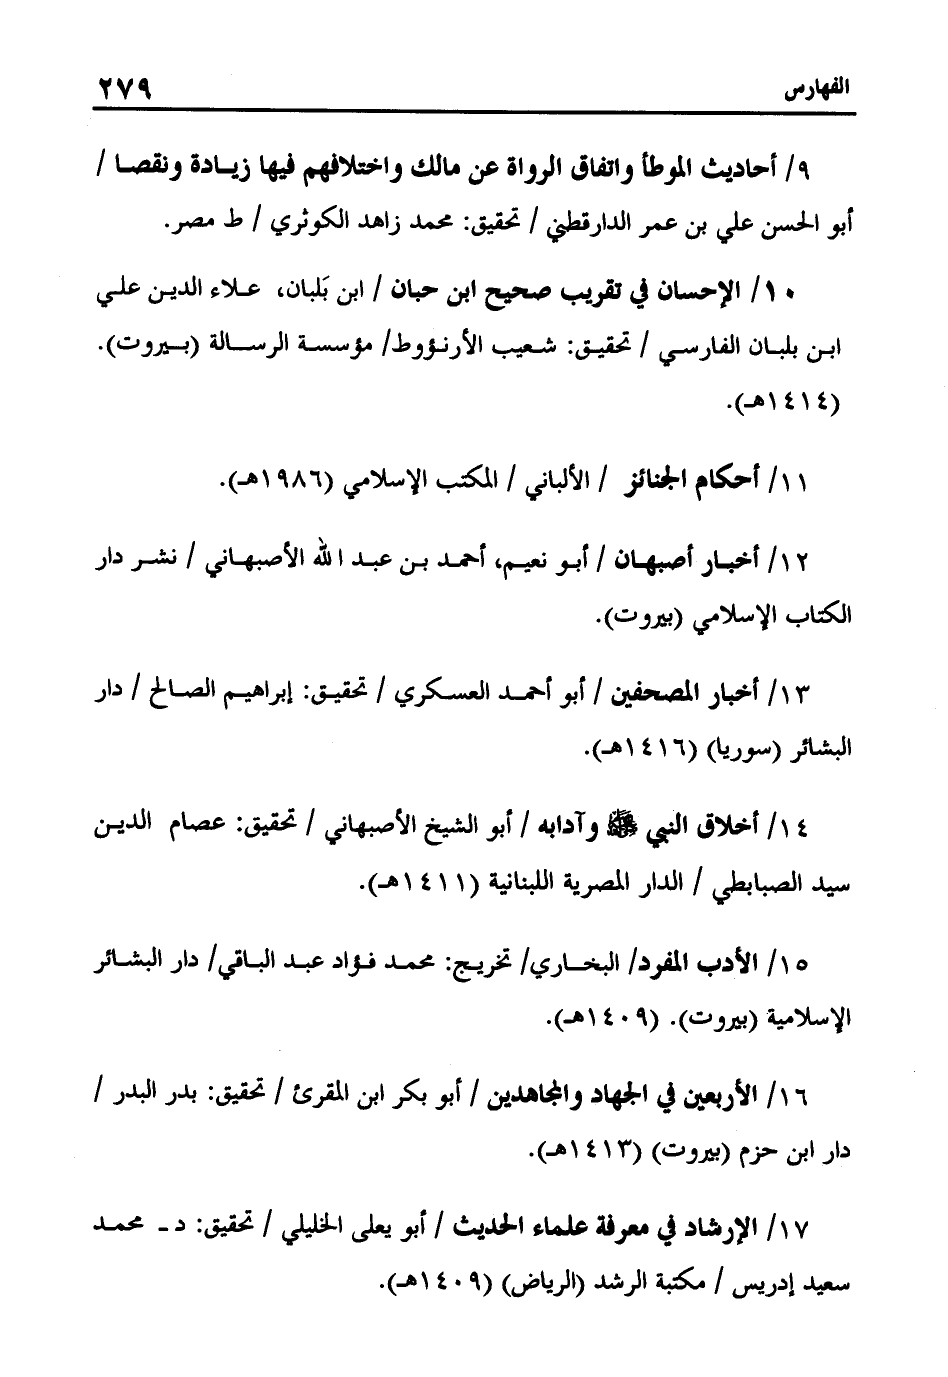 الفهارس ٢٧٩
٩/ أحاديث الموطأ واتفاق الرواة عن مالك واختلافهم فيها زيادة ونقصا /
أبو الحسن علي بن عمر الدارقطني / تحقيق: محمد زاهد الكوثري / ط مصر.
١٠/ الإحسان في تقريب صحيح ابن حبان / ابن بَلبان، علاء الدين علي
ابن بلبان الفارسي / تحقيق: شعيب الأرنؤوط/ مؤسسة الرسالة (بيروت).
(١٤١٤هـ).
١١/ أحكام الجنائز / الألباني / المكتب الإسلامي (١٩٨٦هـ).
١٢/ أخبار أصبهان / أبو نعيم، أحمد بن عبد الله الأصبهاني / نشر دار
الكتاب الإسلامي (بيروت).
١٣/ أخبار المصحفين / أبو أحمد العسكري / تحقيق: إبراهيم الصالح / دار
البشائر (سوريا) (١٤١٦هـ).
١٤/ أخلاق النبي ﷺ وآدابه / أبو الشيخ الأصبهاني / تحقيق: عصام الدين
سيد الصبابطي / الدار المصرية اللبنانية (١٤١١هـ).
١٥/ الأدب المفرد/ البخاري/ تخريج: محمد فؤاد عبد الباقي/ دار البشائر
الإسلامية (بيروت). (١٤٠٩هـ).
١٦/ الأربعين في الجهاد والمجاهدين / أبو بكر ابن المقرئ / تحقيق: بدر البدر /
دار ابن حزم (بيروت) (١٤١٣هـ).
١٧/ الإرشاد في معرفة علماء الحديث / أبو يعلى الخليلي / تحقيق: د ـ محمد
سعيد إدريس / مكتبة الرشد (الرياض) (١٤٠٩هـ).